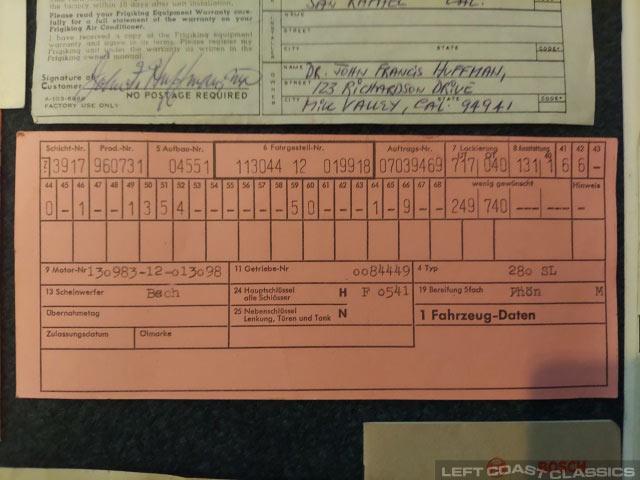 the factory within 10 days after unit installation.
Please read your Frigiking Equipment Warranty care-
fully for a full statement of the warranty on your
Frigiking Air Conditioner.
I have received a copy of the Frigiking equipment
warranty and agree to its terms. Please register my
Frigiking unit under the warranty as written in the
Frigiking owners manual.
Signature of
Customer
NO POSTAGE REQUIRED
FACTORY USE ONLY
SAN RAFAEL CAL.
NAME
STREET
CITY STATE CODE
OWNER
NAME DR. JOHN FRANCIS HUFFMAN,
STREET 123 RICHARDSON DRIVE
CITY MILL VALLEY, CAL. 94941 STATE CODE
Schicht-Nr. Prod.-Nr. 5 Aufbau-Nr. 6 Fahrgestell-Nr. Auftrags-Nr. 7 Lackierung 8 Ausstattung 40 41 42 43
3917 960731 04551 113044 12 019918 07039469 717 040 131 1 6 6 -
44 45 46 47 48 49 50 51 52 53 54 55 56 57 58 59 60 61 62 63 64 65 66 67 68 wenig gewünscht Hinweis
0 - 1 - - 1 3 5 4 - - - - - - 5 0 - - - 1 - 9 - - 249 740 - - - -
9 Motor-Nr 130983-12-013098 11 Getriebe-Nr 0084449 4 Typ 280 SL
13 Scheinwerfer Bosch 24 Hauptschlüssel alle Schlösser H F 0541 19 Bereifung 5fach Phön M
Übernahmetag 25 Nebenschlüssel Lenkung, Türen und Tank N 1 Fahrzeug-Daten
Zulassungsdatum Ölmarke
BOSCH
LEFT COAST CLASSICS